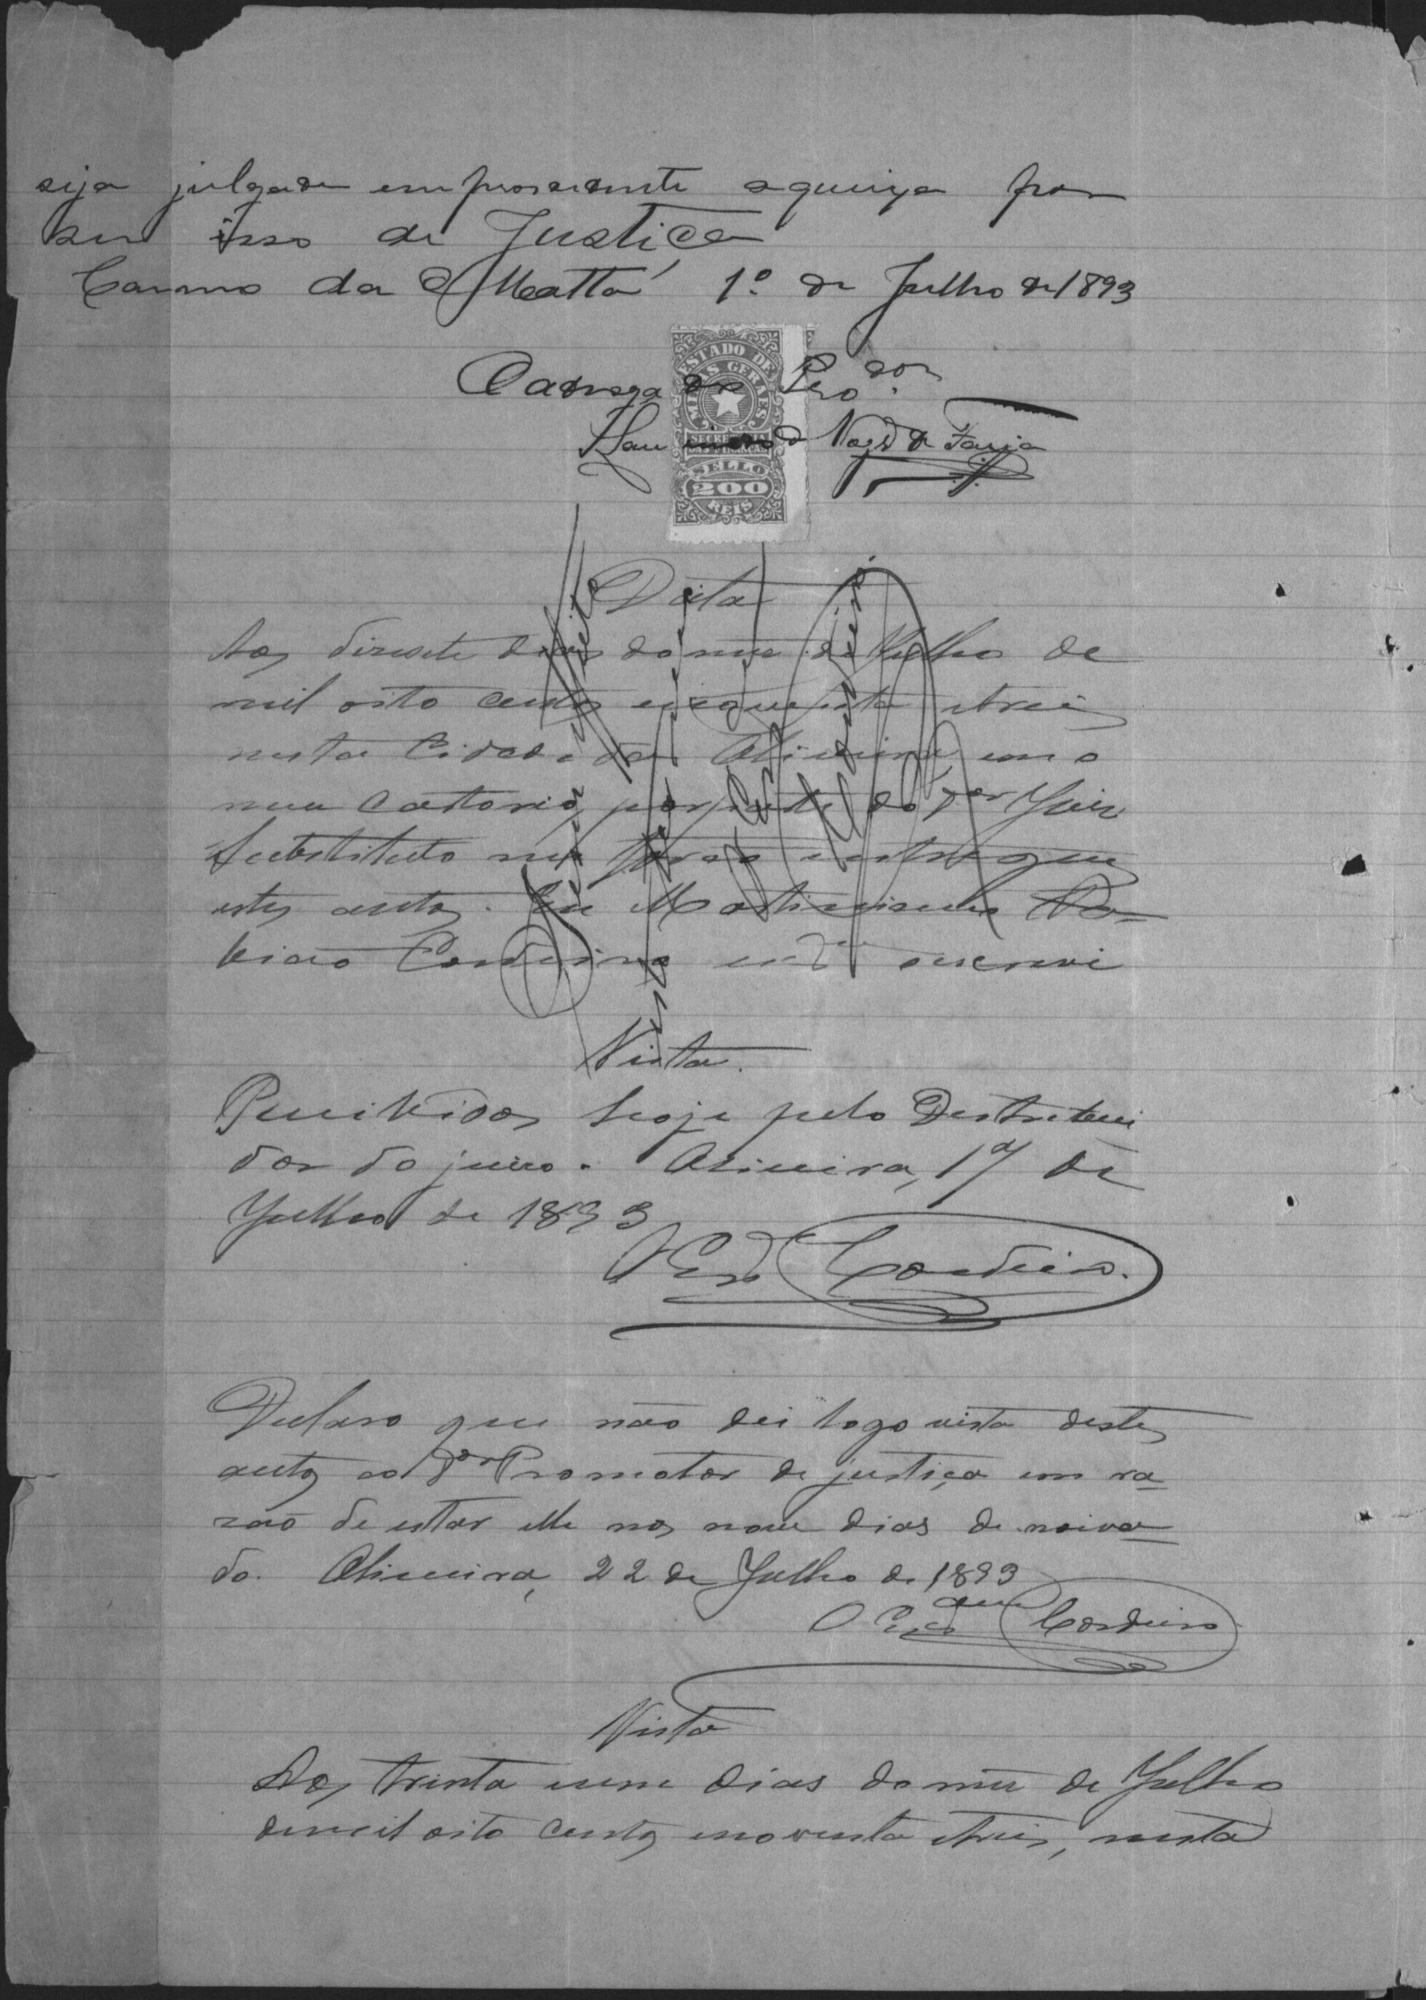 seja julgada improcedente a queixa por
ser isso de Justiça
Carmo da Matta 1.º de Julho de 1893
ESTADO DE
MINAS GERAES
SELLO
200
REIS
Data
Aos dezesete dias do mez de Julho de
mil oito centos e noventa e treis
nesta Cidade de Oliveira, em o
meu Cartorio, por parte do Dor Juiz
Substituto me foram entregues
estes autos. Eu
Cordeiro escrevi
Vista.
Recebidos hoje pelo Destribui
dor do juizo. Oliveira, 17 de
Julho de 1893
O Esam Cordeiro.
Declaro que não dei logo vista destes
autos ao Dor Promotor de justiça em ra-
zão de estar elle nos nove dias de noiva-
do. Oliveira, 22 de Julho de 1893
O Escam Cordeiro
Vista
Aos trinta e um dias do mez de Julho
de mil oito centos e noventa e treis, nesta